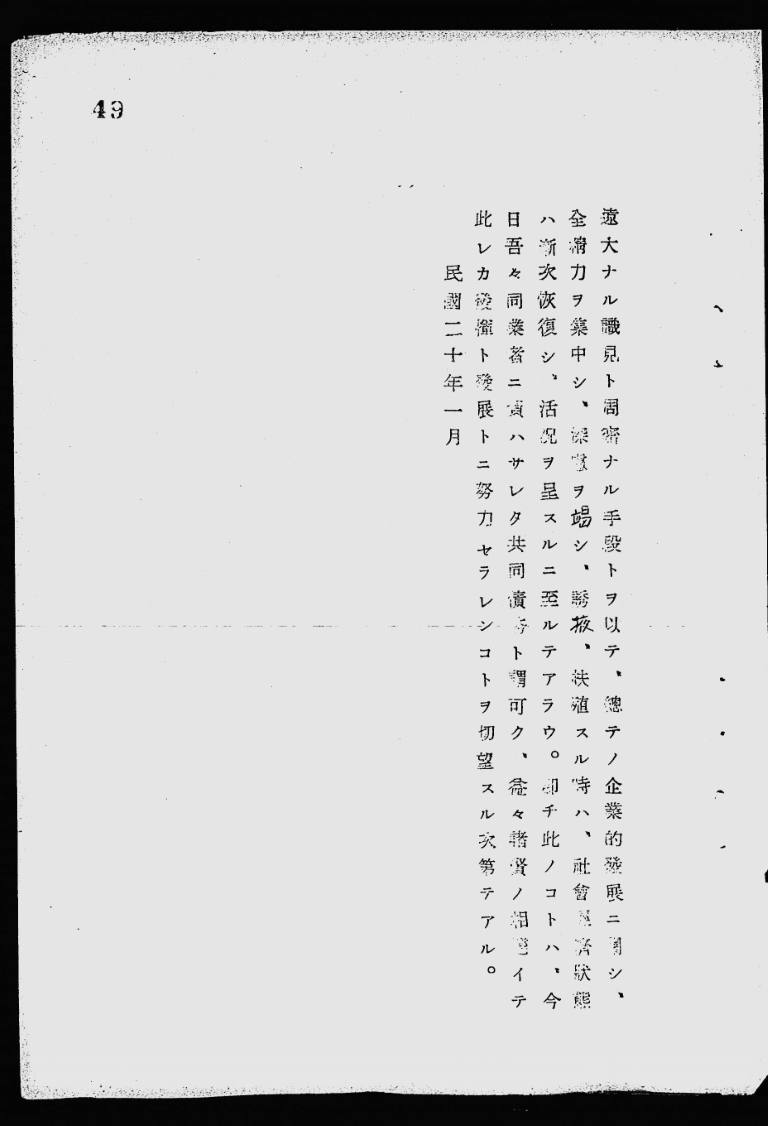 49
遠大ナル識見ト周密ナル手段トヲ以テ、總テノ企業的發展ニ關シ、
全精力ヲ集中シ、深慮ヲ竭シ、誘掖、扶殖スル時ハ、社會經濟狀態
ハ漸次恢復シ、活況ヲ呈スルニ至ルテアラウ。卽チ此ノコトハ、今
日吾々同業者ニ責ハサレタ共同責ト謂可ク、益々諸賢ノ相イテ
此レカ發揮ト發展トニ努力セラレンコトヲ切望スル次第テアル。
民國二十年一月